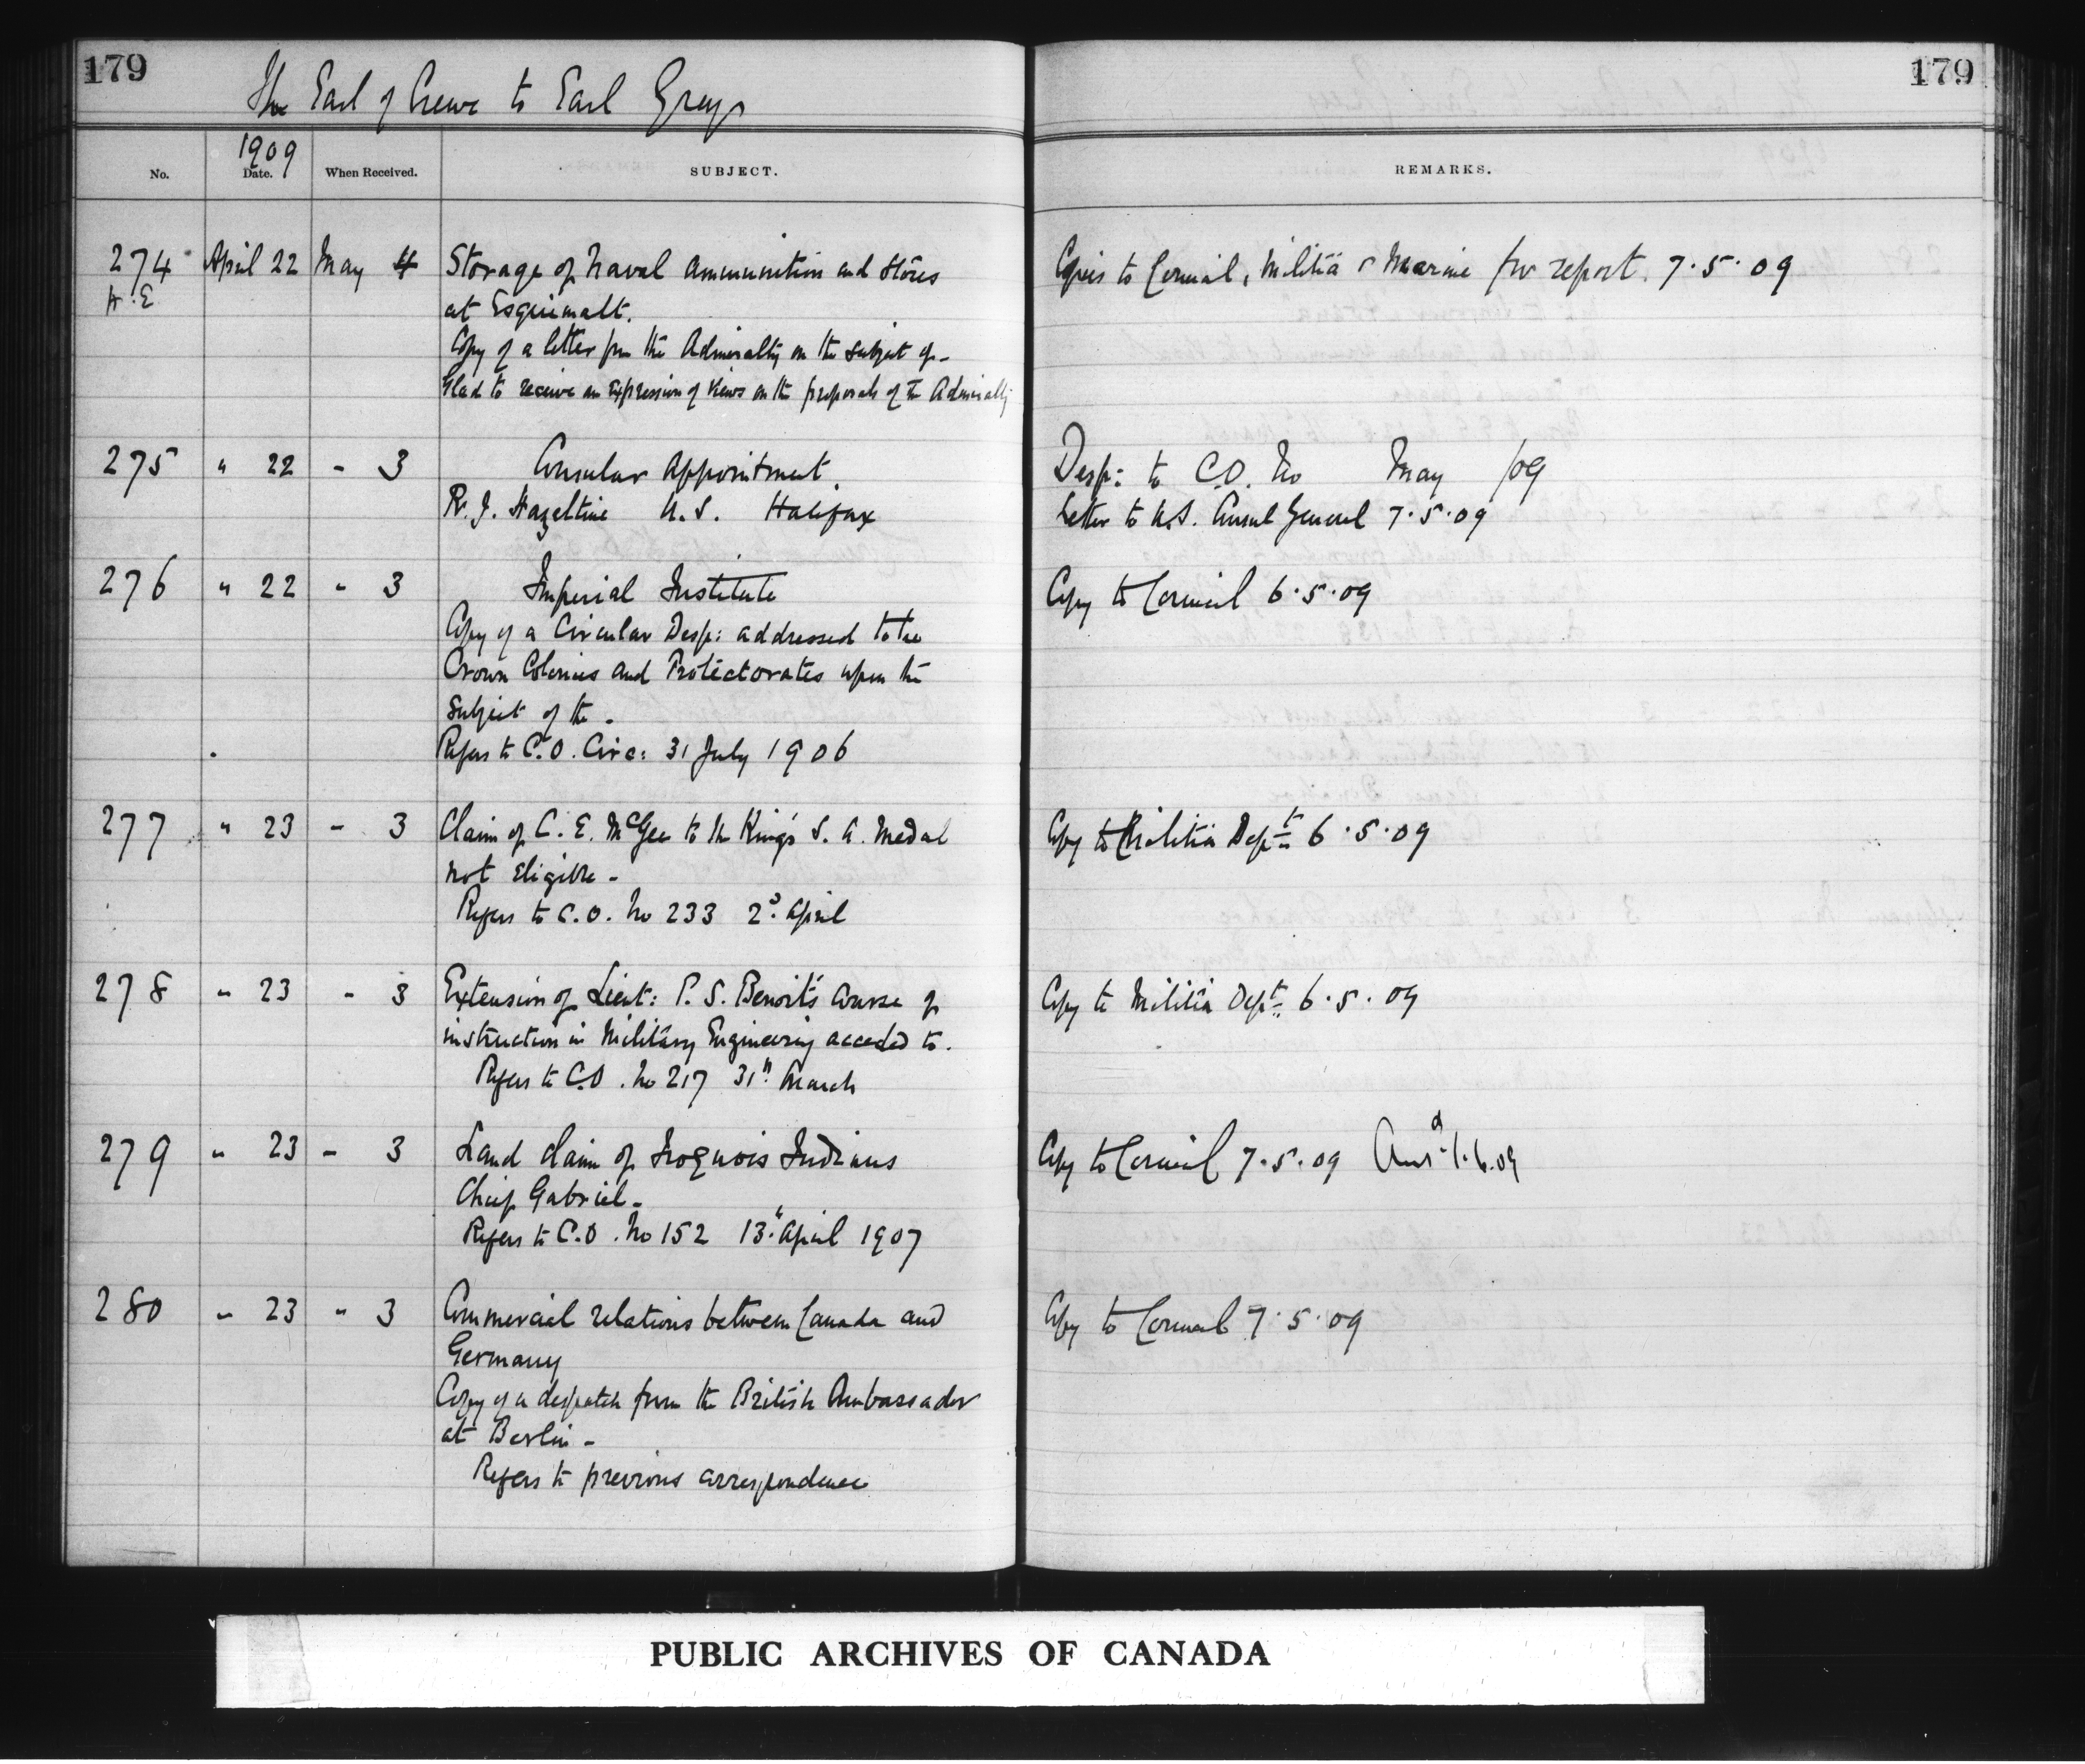 179
The Earl of Crewe to Earl Grey
179
1909
No. Date. When Received. SUBJECT. REMARKS.
274 April 22 May 4 Storage of Naval Ammunition and Stores Copies to Council, Militia & Marine for report. 7.5.09
at Esquimalt.
Copy of a letter from the Admiralty on the subject of -
Glad to receive an expression of views on the proposals of the Admiralty
275 " 22 - 3 Consular Appointment. Desp: to C.O. No May /09
R. J. Hazeltine U.S. Halifax Letter to U.S. Consul General 7.5.09
276 " 22 - 3 Imperial Institute Copy to Council 6.5.09
Copy of a Circular Desp: addressed to the
Crown Colonies and Protectorates upon the
subject of the -
Refers to C.O. Circ: 31 July 1906
277 " 23 - 3 Claim of C. E. McGee to the King's S. A. Medal Copy to Militia Dept 6.5.09
not eligible -
Refers to C.O. No 233 2d April
278 " 23 - 3 Extension of Lieut: P. S. Benoit's course of Copy to Militia Dept 6.5.09
instruction in Military Engineering acceded to.
Refers to C.O. No 217 31" March
279 " 23 - 3 Land claim of Iroquois Indians Copy to Council 7.5.09 Ansd 1.6.09
Chief Gabriel -
Refers to C.O. No 152 13" April 1907
280 " 23 " 3 Commercial relations between Canada and Copy to Council 7.5.09
Germany
Copy of a despatch from the British Ambassador
at Berlin -
Refers to previous correspondence
PUBLIC ARCHIVES OF CANADA